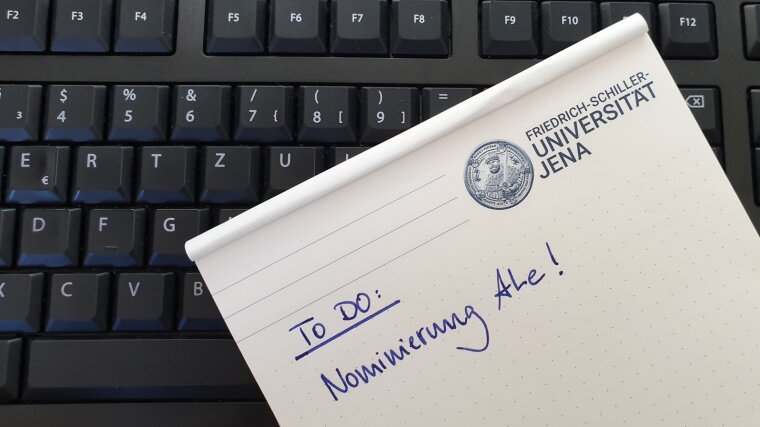 F2 F3 F4 F5 F6 F7 F8 F9 F10 F12
3 $ 4 % 5 & 6 / 7 { ( 8 [ ) 9 ] =
E € R T Z U
D F G
X C V B
FRIEDRICH-SCHILLER-
UNIVERSITÄT
JENA
TO DO:
Nominierung ALe!